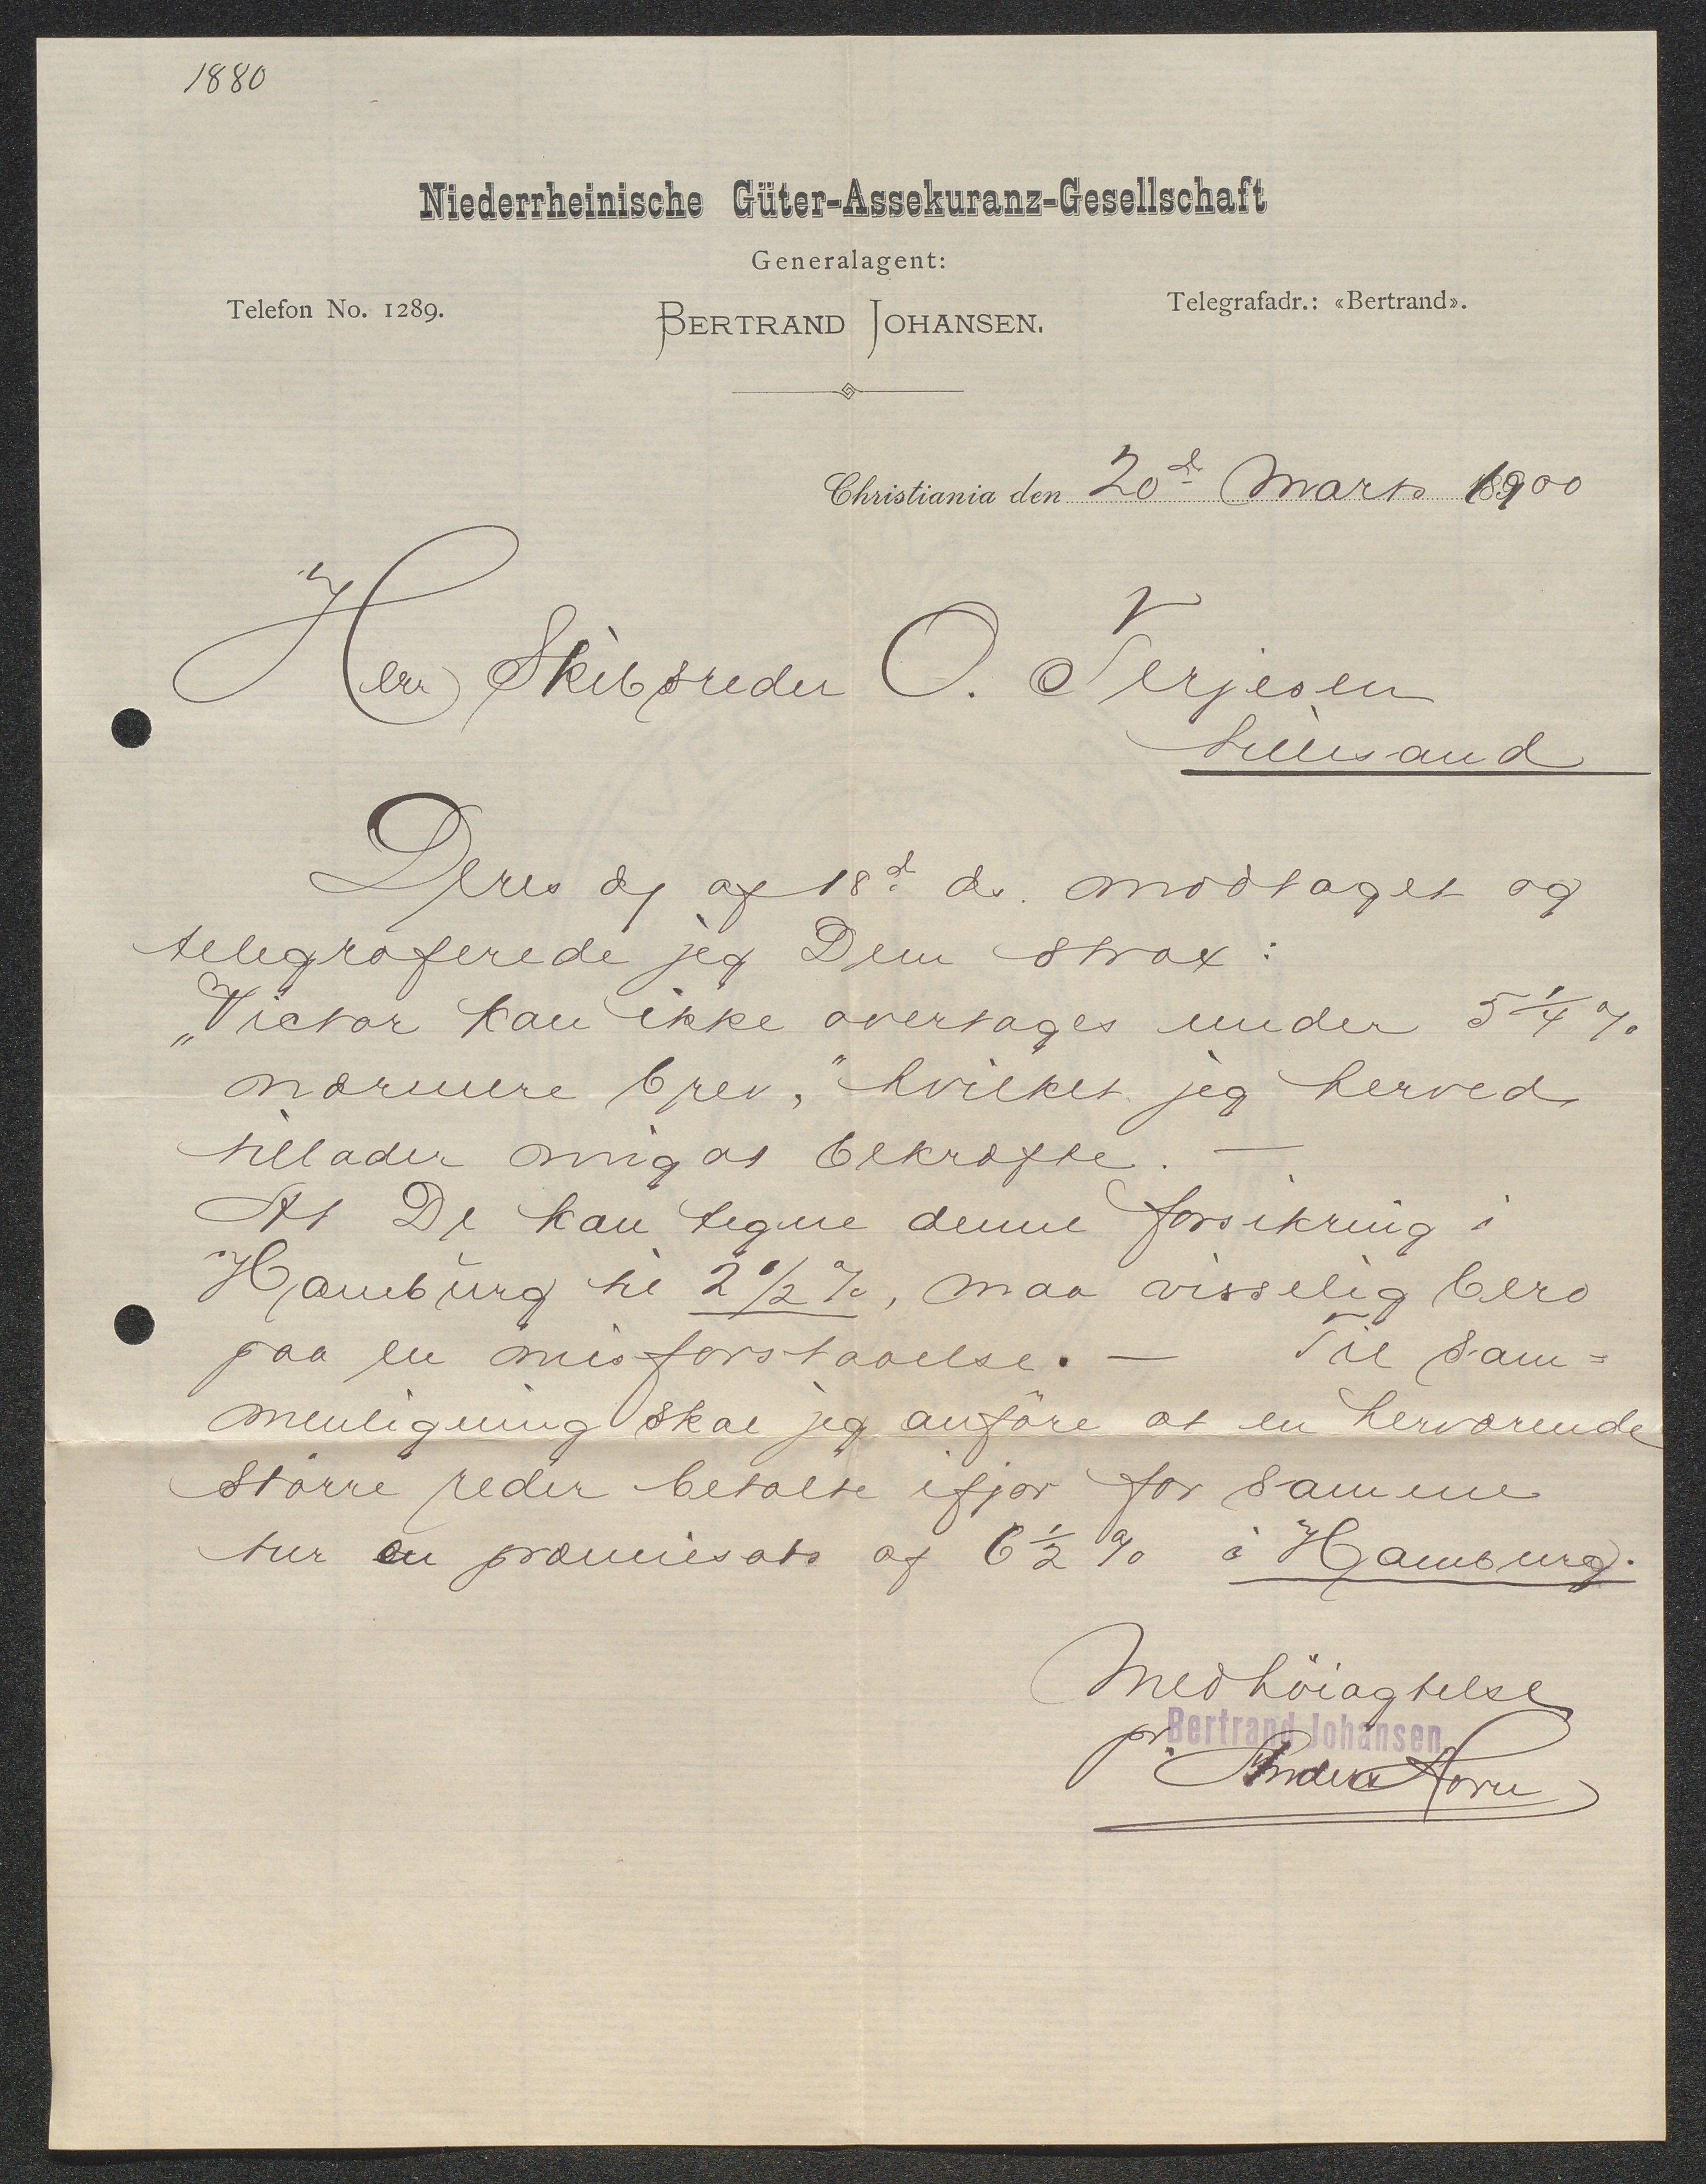 1880
Niederrheinische Güter-Assekuranz-Gesellschaft
Generalagent:
Telefon No. 1289.
BERTRAND JOHANSEN.
Telegrafadr.: «Bertrand».
Christiania den 20d Marts 1900
Herr Skibsreder O. Terjesen
Lillesand
Deres af 18d ds. modtaget og
telegraferede jeg Dem strax:
„Victor kan ikke overtages under 5 1/4 %
nærmere brev," hvilket jeg herved
tillader mig at bekræfte. —
At De kan tegne denne forsikring i
Hamburg til 2 1/2 %, maa visselig bero
paa en misforstaaelse. — Til sam=
menligning skal jeg anföre at en herværende
större reder betalte ifjor for samme
tur en præmiesats af 6 1/2 % i Hamburg.
Med höiagtelse
pr. Bertrand Johansen